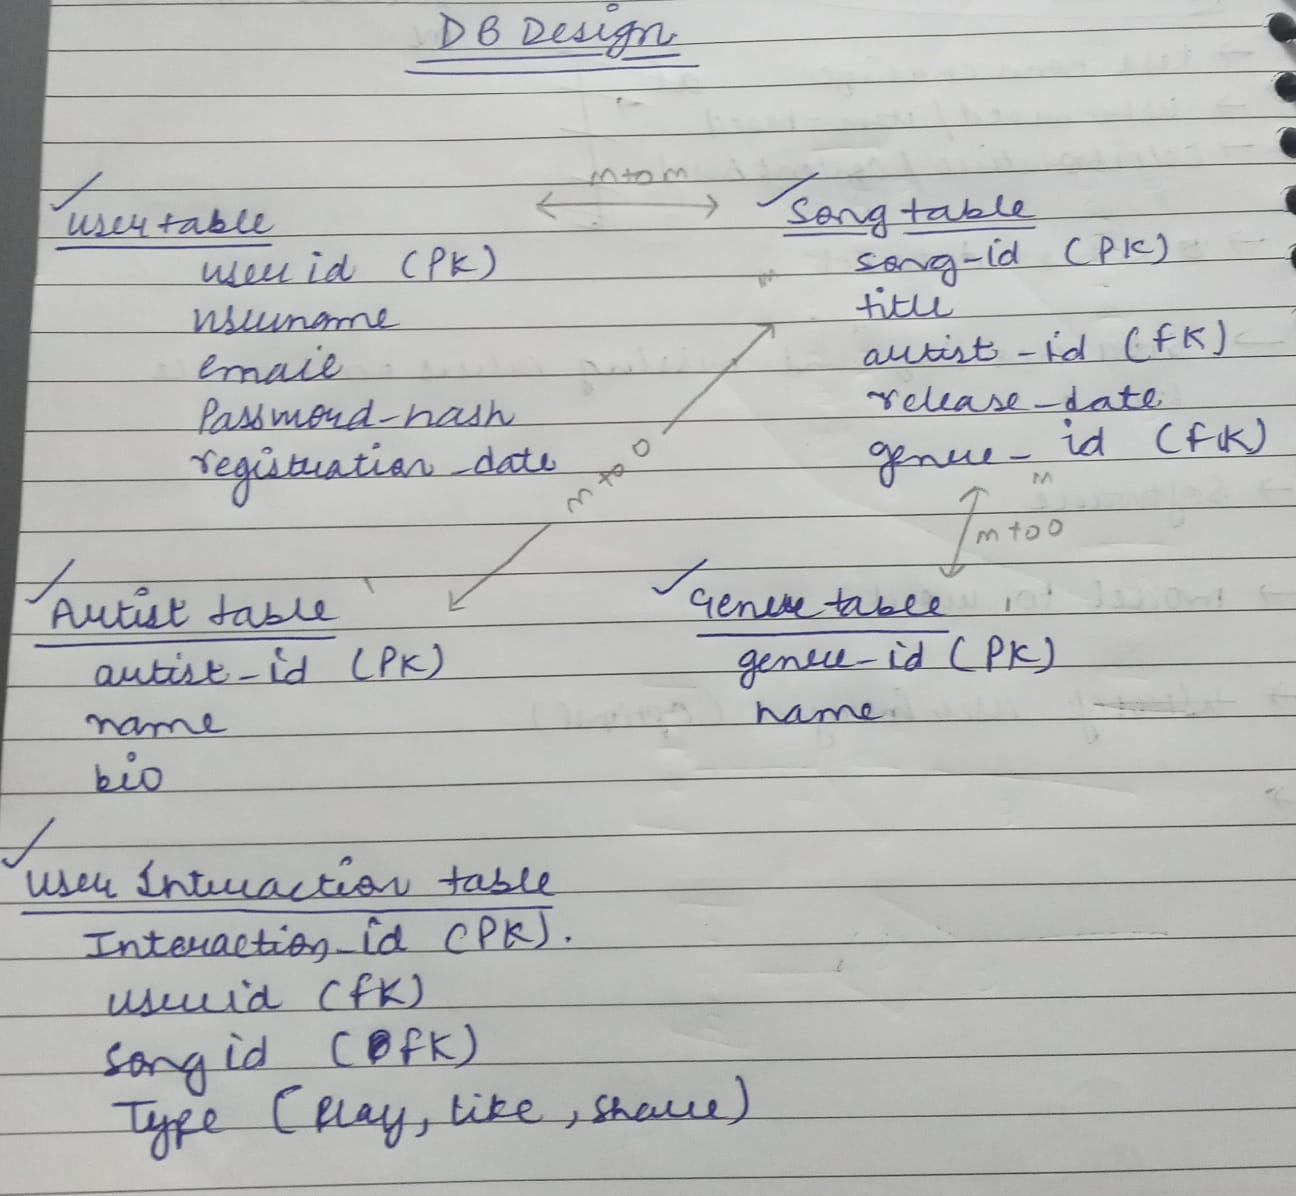 DB Design
m to m
User table
user id (PK)
username
email
Password-hash
registration_date
Song table
song-id (PK)
title
artist-id (fK)
release-date
genre-id (fK)
m
m
m to o
m to o
Artist table
artist-id (PK)
name
bio
Genre table
genre-id (PK)
name
User Interaction table
Interaction_id (PK).
userid (fK)
song id (fK)
Type (Play, like, share)